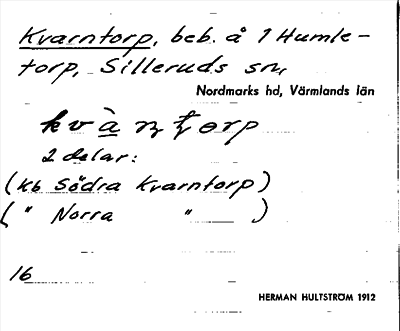 Kvarntorp, beb. å 1 Humle-
torp, Silleruds sn,
Nordmarks hd, Värmlands län
kvàṇṭorp
2 delar:
(kb Södra Kvarntorp)
( " Norra " )
16
HERMAN HULTSTRÖM 1912